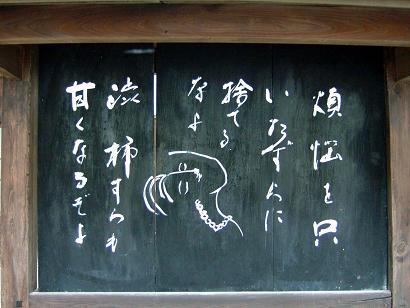 煩悩を只
いたずらに
捨てる
なよ
渋柿すらも
甘くなるぞよ